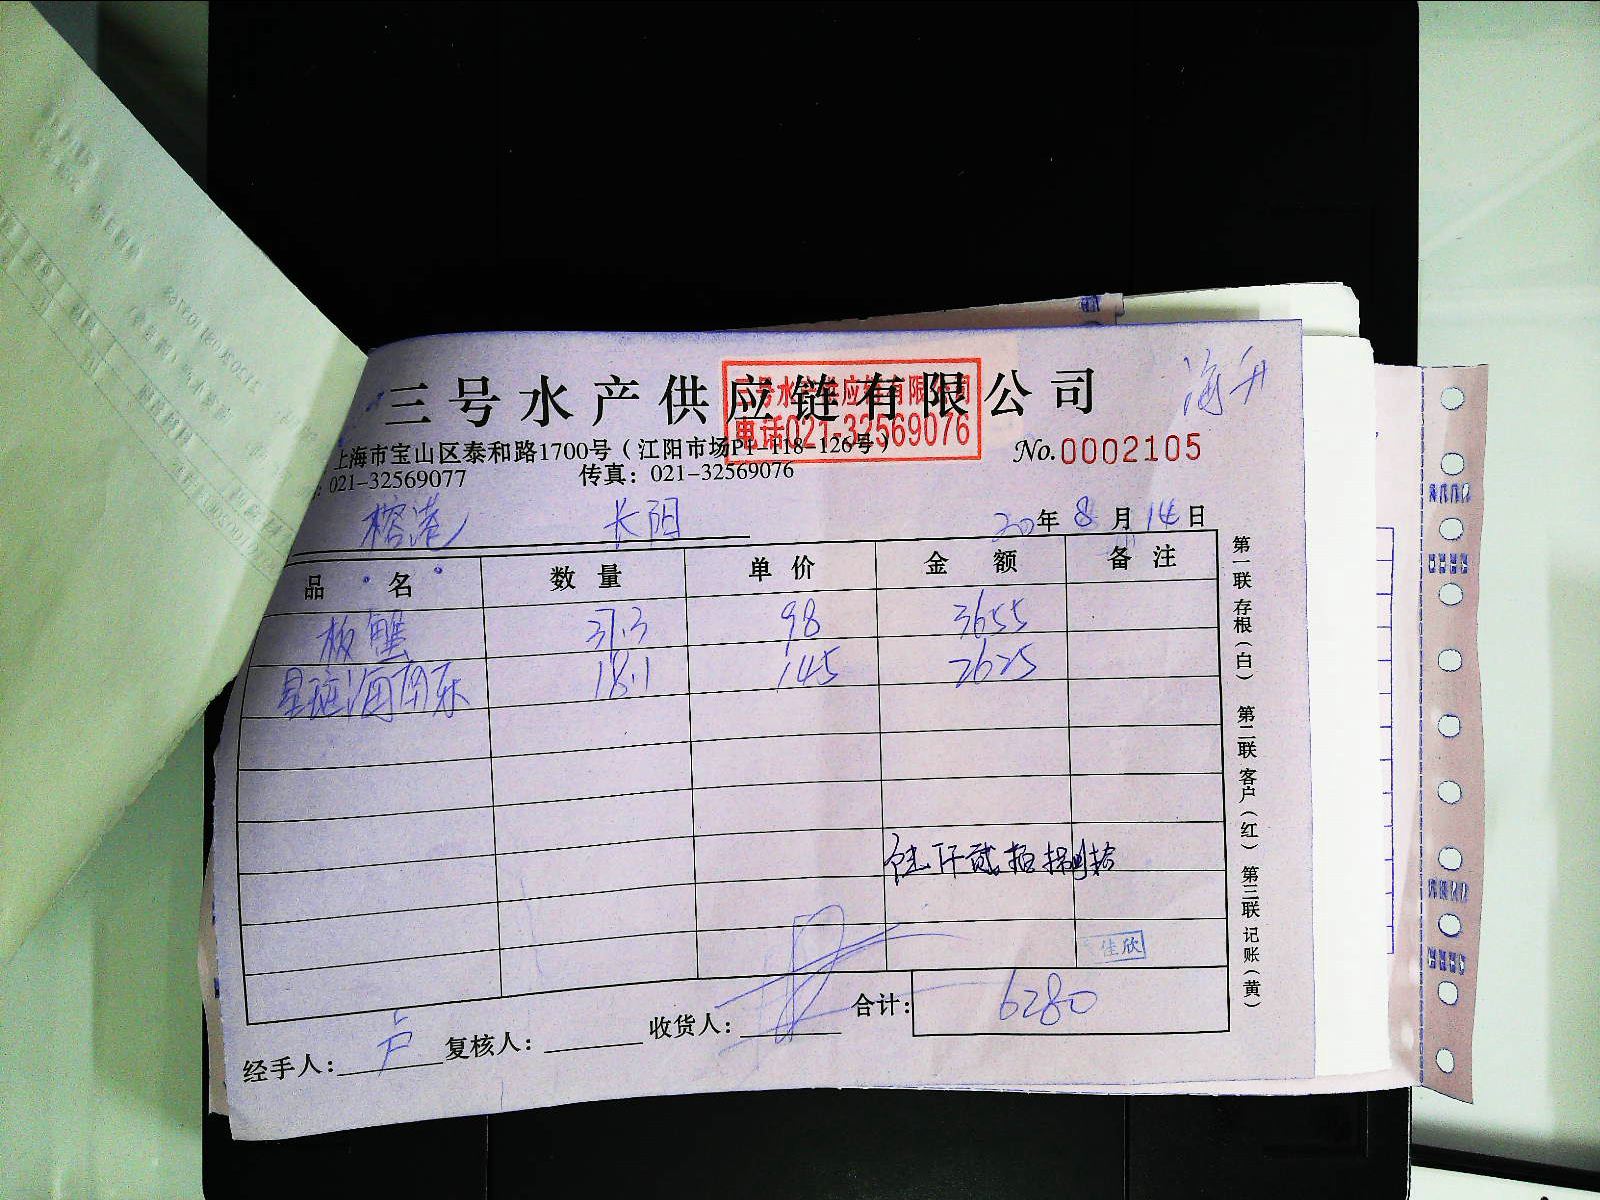 三号水产供应链有限公司
海升
三号水产供应链有限公司
电话021-32569076
上海市宝山区泰和路1700号(江阳市场P1-118-126号)
No.0002105
021-32569077 传真:021-32569076
榕港 长阳 20年8月14日
品名 数量 单价 金额 备注
板蟹 37.3 98 3655
星斑海南东 18.1 145 2625
陆仟贰佰捌拾
佳欣
合计: 6280
经手人: 卢 复核人: 收货人:
第一联 存根(白) 第二联 客户(红) 第三联 记账(黄)